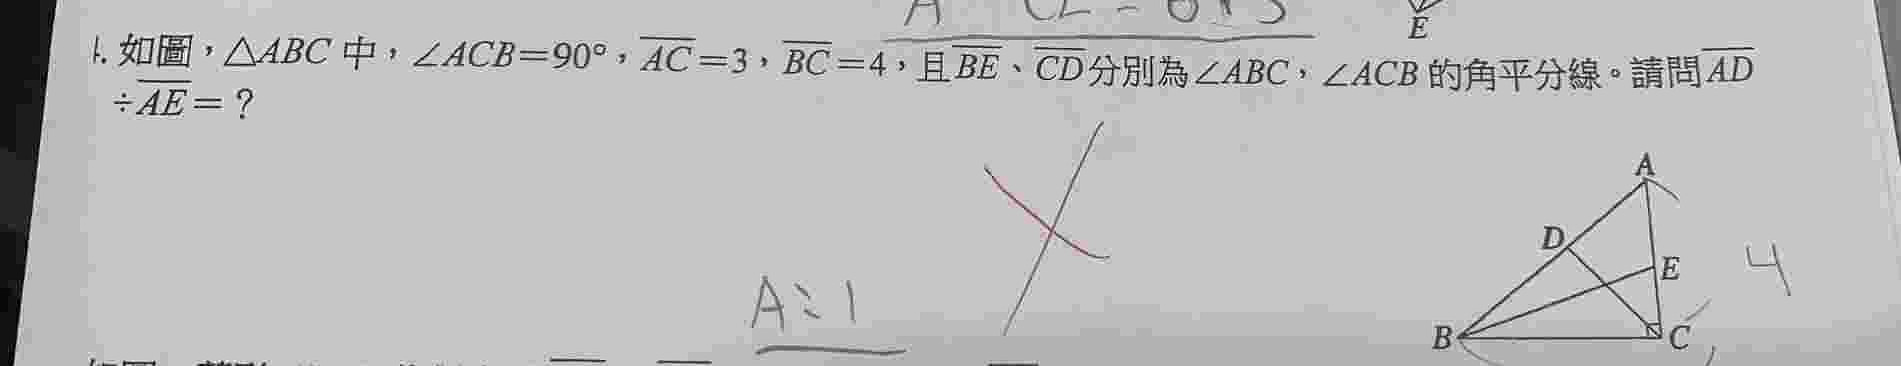 A CE = 6+3
E
1. 如圖，△ABC 中，∠ACB=90°，AC=3，BC=4，且BE、CD分別為∠ABC，∠ACB 的角平分線。請問AD
÷AE=？
A
D
E
4
B
C
A：1